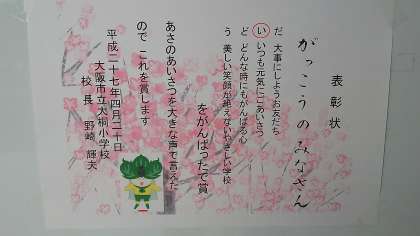 表彰状
がっこうのみなさん
だ 大事にしようお友だち
い いつも元気にごあいさつ
ど どんな時にもがんばる心
う 美しい笑顔が絶えないやさしい学校
をがんばったで賞
あさのあいさつを大きな声で言えた
ので これを賞します
平成二十七年四月二十日
大阪市立大桐小学校
校長 野崎 輝夫